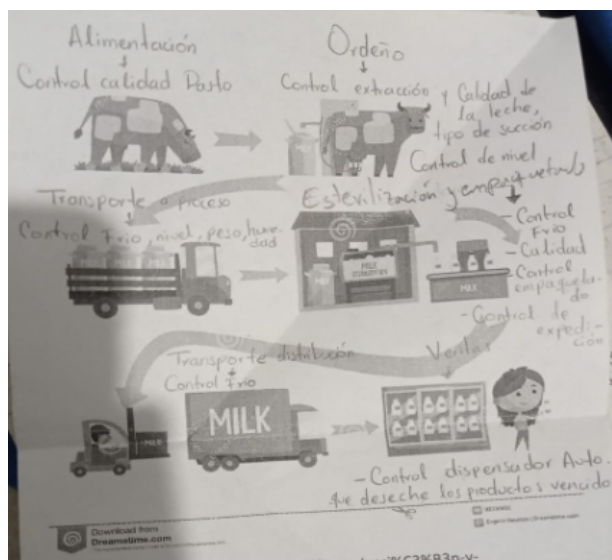 Alimentación
Control calidad Pasto
Ordeño
Control extracción y Calidad de
la leche,
tipo de succión
Control de nivel
Transporte a proceso
Control Frio, nivel, peso, hume
dad
Esterilización y empaquetado
- Control
Frio
- Calidad
- Control
empaqueta-
do
- Control de
expedi-
ción
MILK
MILK
Transporte distribución
Control Frio
Ventas
MILK
MILK
- Control dispensador Auto.
que deseche los productos vencido
Download from
Dreamstime.com